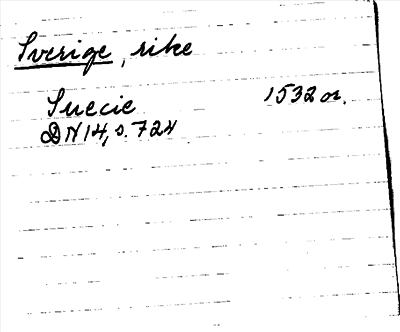 Sverige, rike
Suecie 1532 or.
DN 14, s. 724